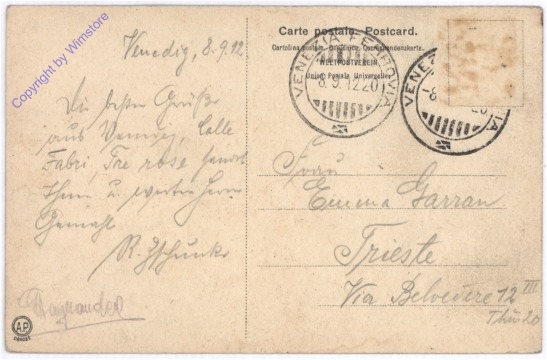 Copyright by Wimstore
Venedig, 8.9.12
Die besten Grüße
aus Venedig, Calle
Fabri, Tre rose sendet
Ihnen u. werten Herrn
Gemahl
R. Zschunke
A.P.
Carte postale. Postcard.
Cartolina postale
WELTPOSTVEREIN
Union Postale Universelle
VENEZIA FERROVIA
8.9.12 20
VENEZIA
Frau
Emma Garran
Trieste
Via Belvedere 12 III
Thür 20